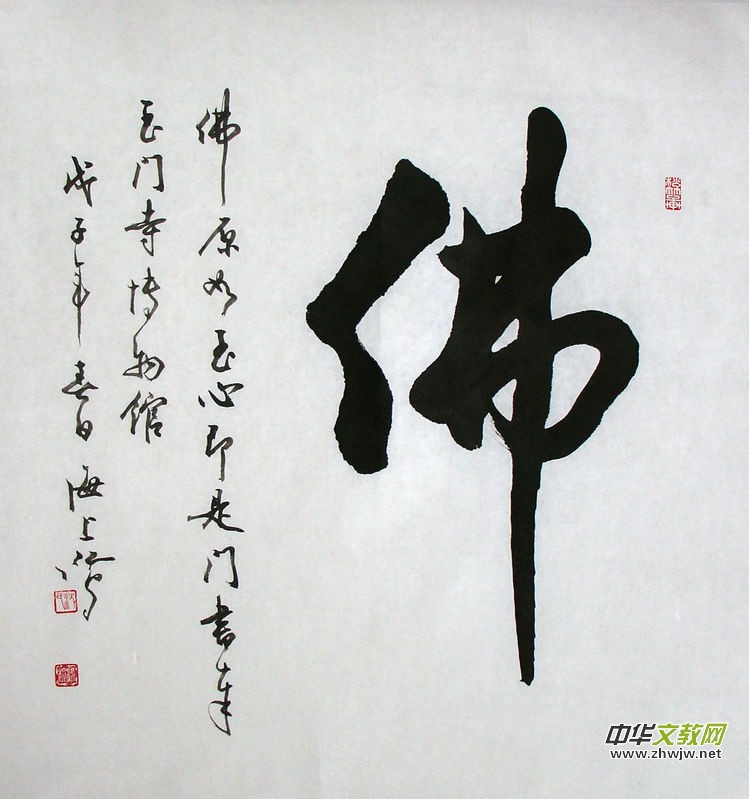 佛
佛原如玉心即是门书奉
玉门寺博物馆
戊子年春日海上
中华文教网
www.zhwjw.net